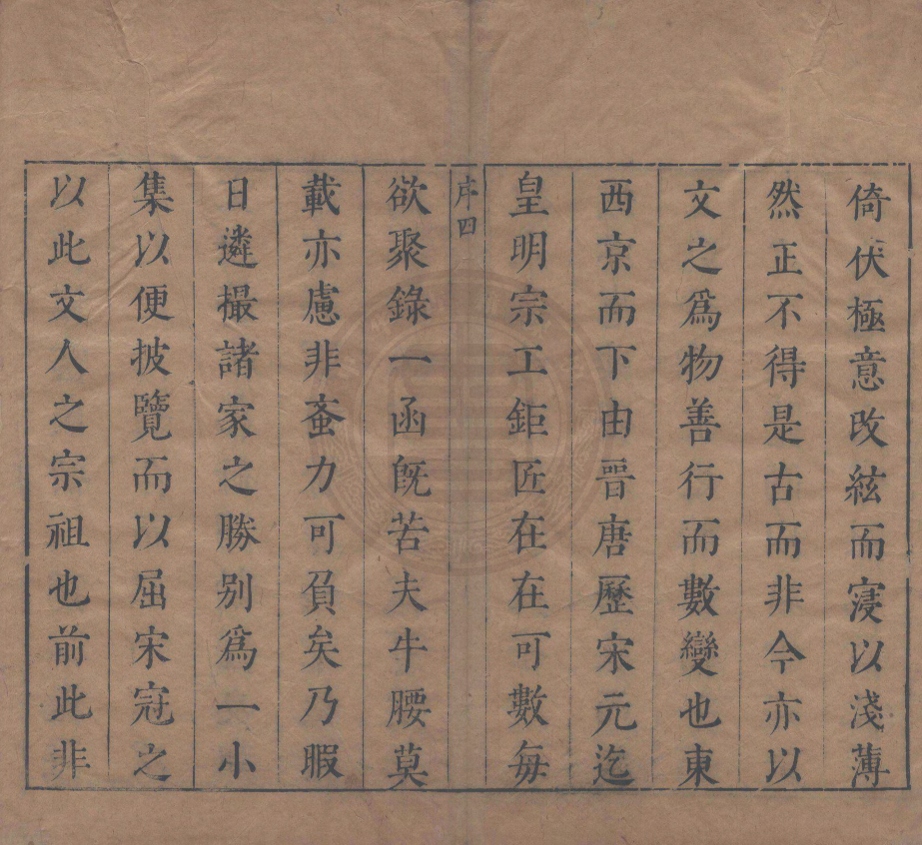 倚伏極意改絃而寖以淺薄
然正不得是古而非今亦以
文之爲物善行而數變也東
西京而下由晉唐歷宋元迄
皇明宗工鉅匠在在可數每
序四
欲聚錄一函旣苦夫牛腰莫
載亦慮非蚉力可負矣乃暇
日遴撮諸家之勝别爲一小
集以便披覽而以屈宋冠之
以此文人之宗祖也前此非